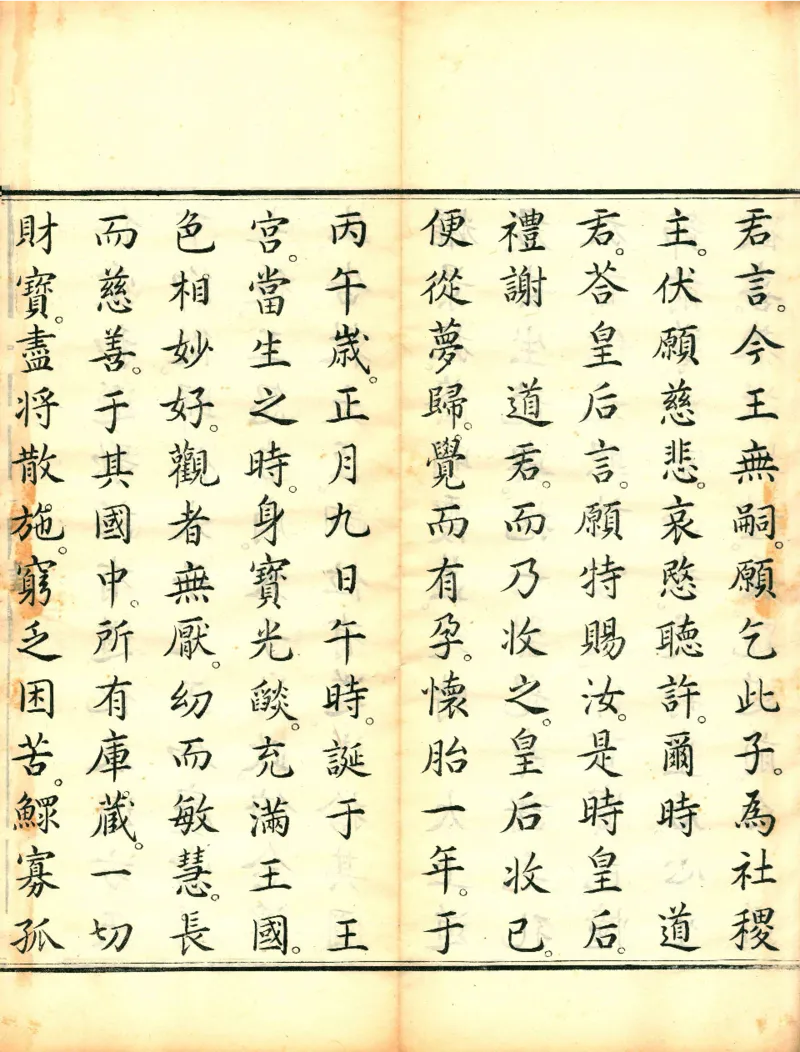 君言。今王無嗣。願乞此子。為社稷
主。伏願慈悲。哀愍聽許。爾時 道
君。荅皇后言。願特賜汝。是時皇后。
禮謝 道君。而乃收之。皇后收已。
便從夢歸。覺而有孕。懷胎一年。于
丙午歲。正月九日午時。誕于 王
宮。當生之時。身寶光燄。充滿王國。
色相妙好。觀者無厭。幼而敏慧。長
而慈善。于其國中。所有庫藏。一切
財寶。盡將散施。窮乏困苦。鰥寡孤